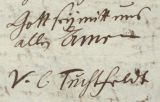 Gott sey mitt uns
allen Amen
V. C. Tuchtfeldt